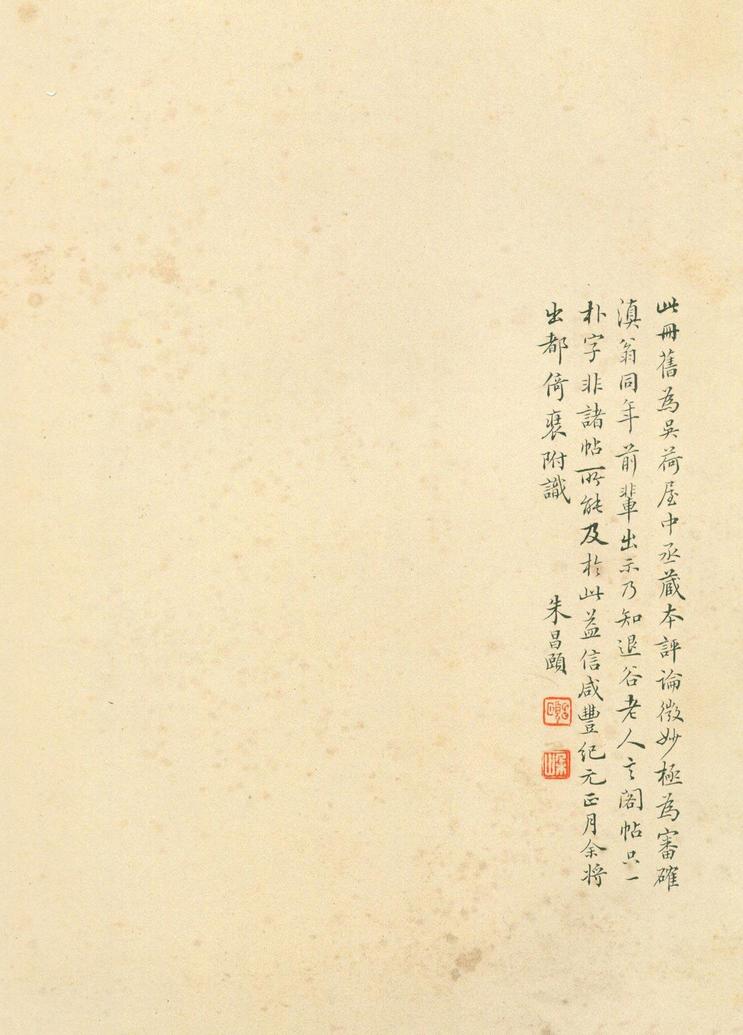 此冊舊為吳荷屋中丞藏本評論微妙極為審確
滇翁同年前輩出示乃知退谷老人言閣帖只一
朴字非諸帖所能及於此益信咸豐紀元正月余將
出都倚裝附識 朱昌頤